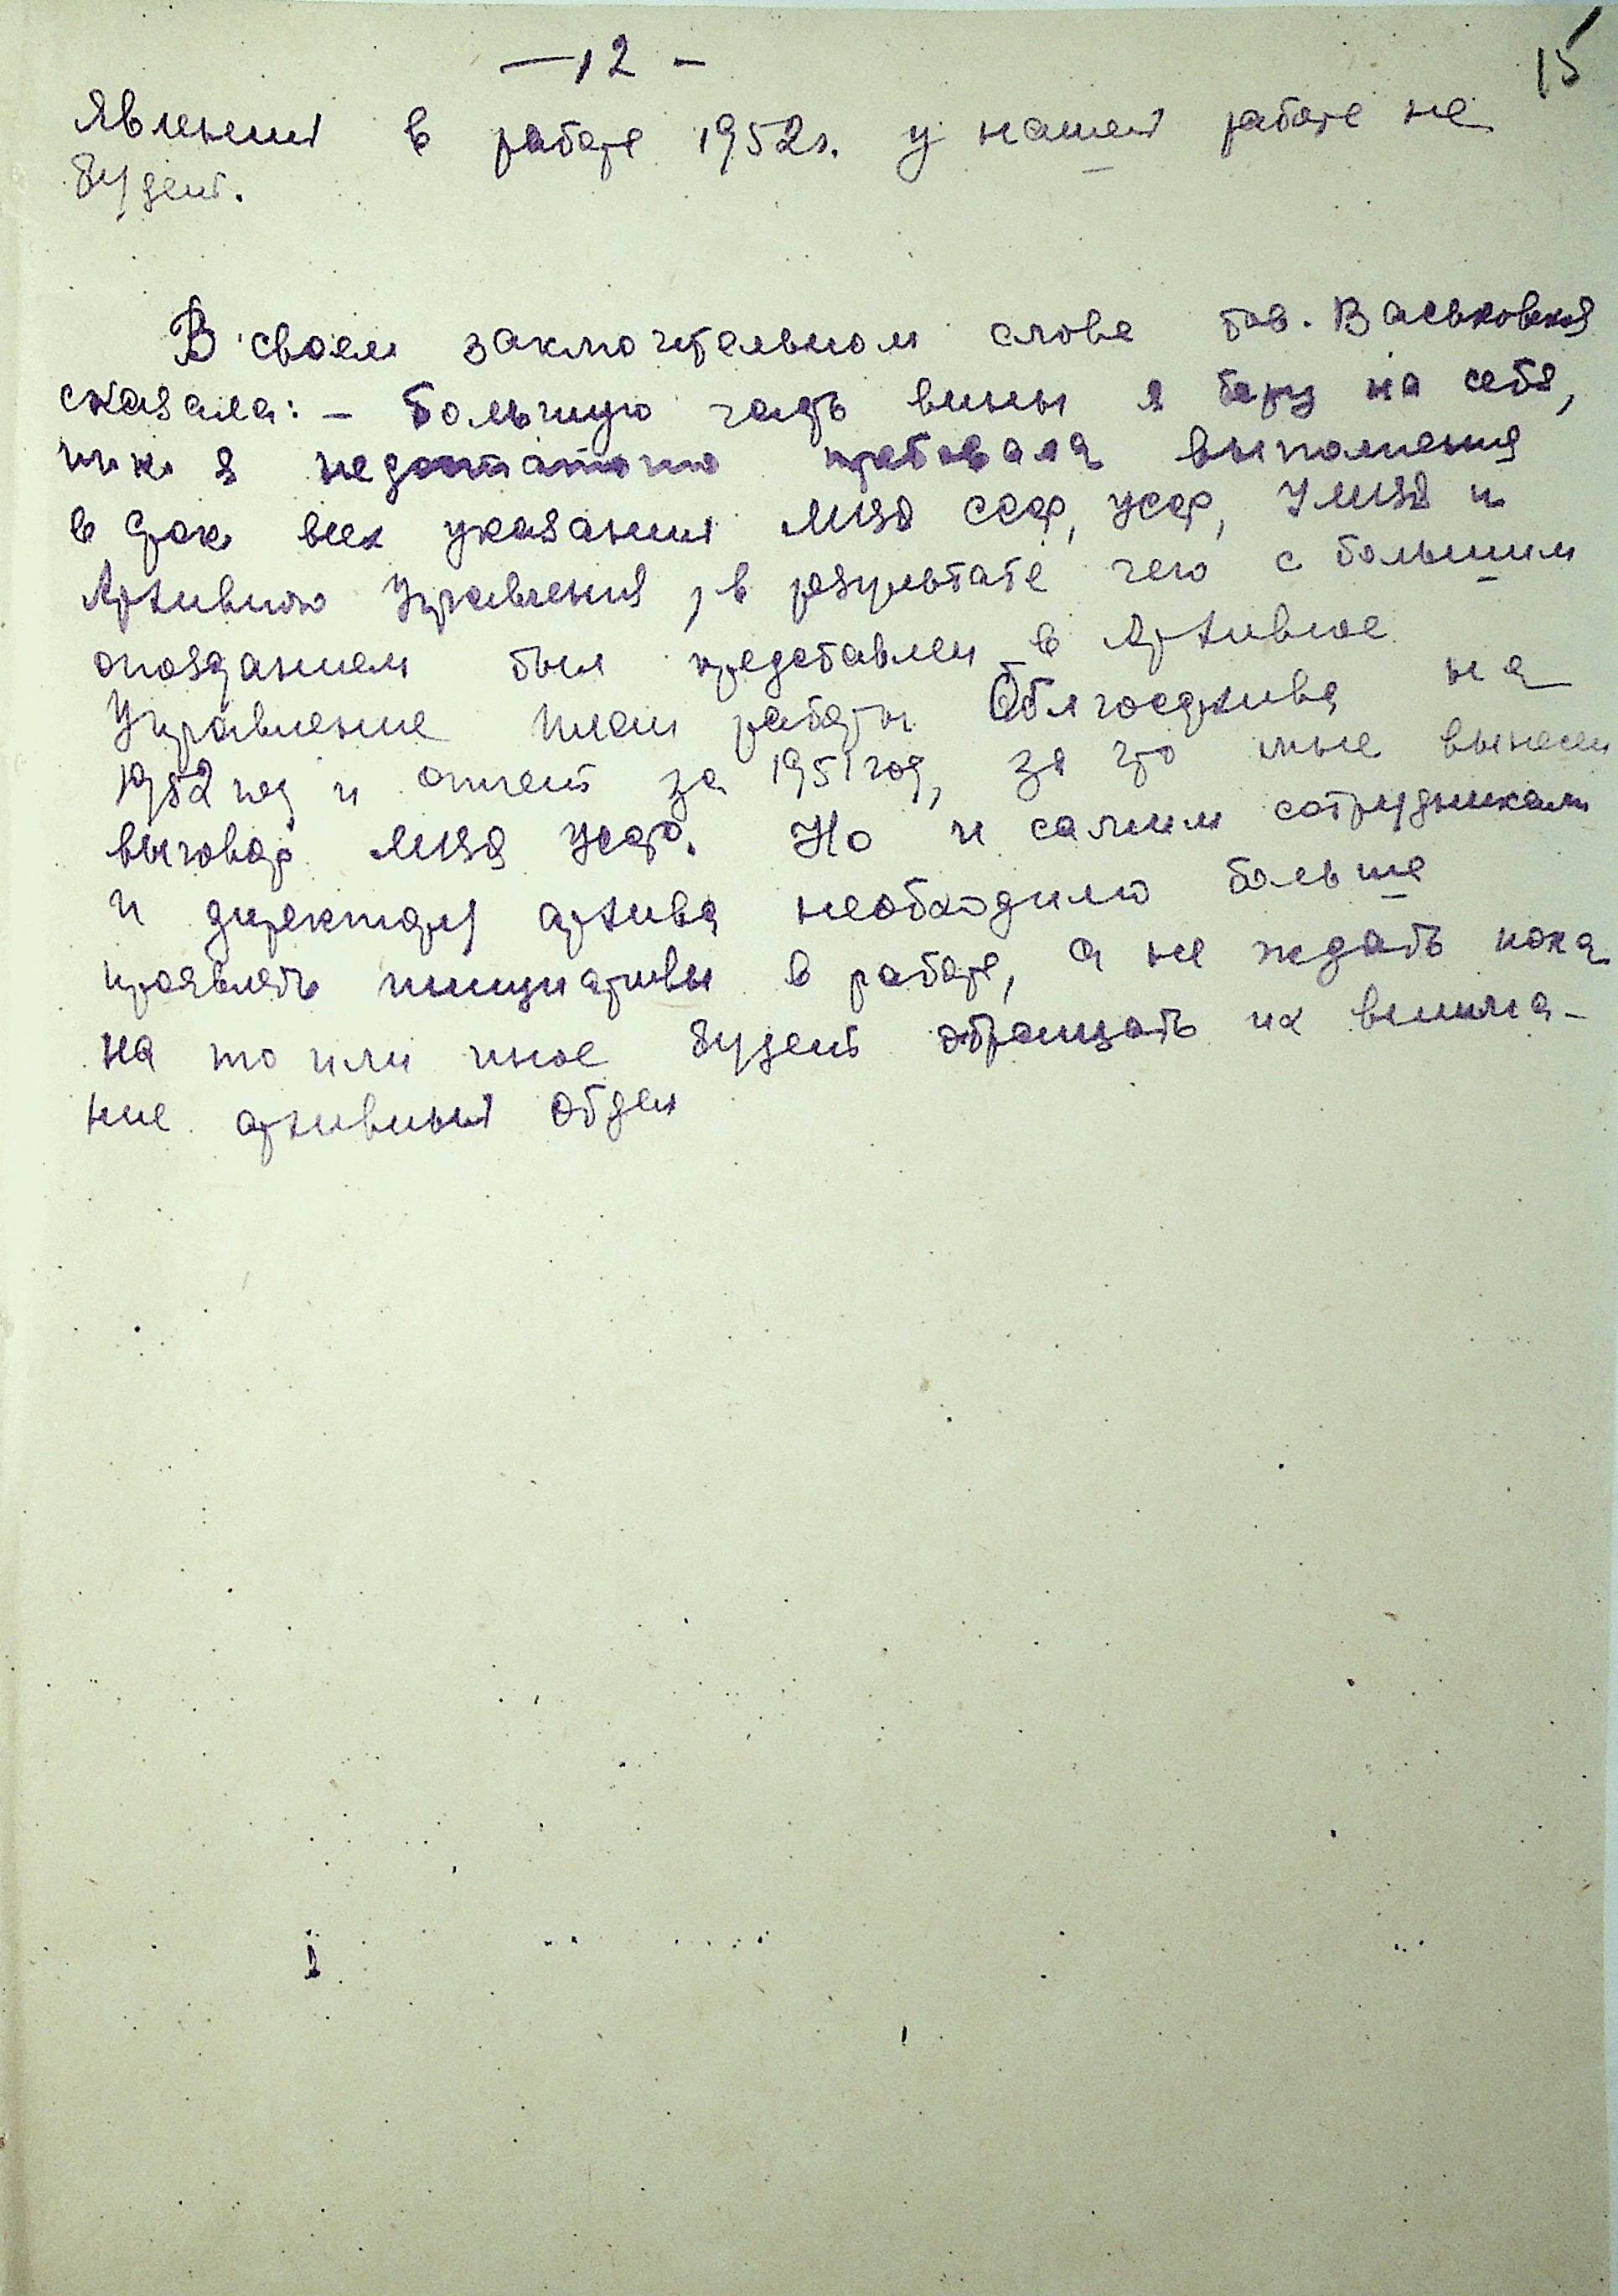 — 12 —
15
явлений в работе 1952г. у нашей работе не
будет.
В своем заключительном слове тов. Васьковская
сказала: – большую часть вины я беру на себя,
т.к. я недостаточно требовала выполнения
в срок всех указаний МВД СССР, УССР, УМВД и
Архивного Управления, в результате чего с большим
опозданием был представлен в Архивное
Управление план работы Облгосархива на
1952 год и отчет за 1951 год, за что мне вынесен
выговор МВД УССР. Но и самим сотрудникам
и директору архива необходимо больше
проявлять инициативы в работе, а не ждать пока
на то или иное будет обращать их внима-
ние архивный отдел